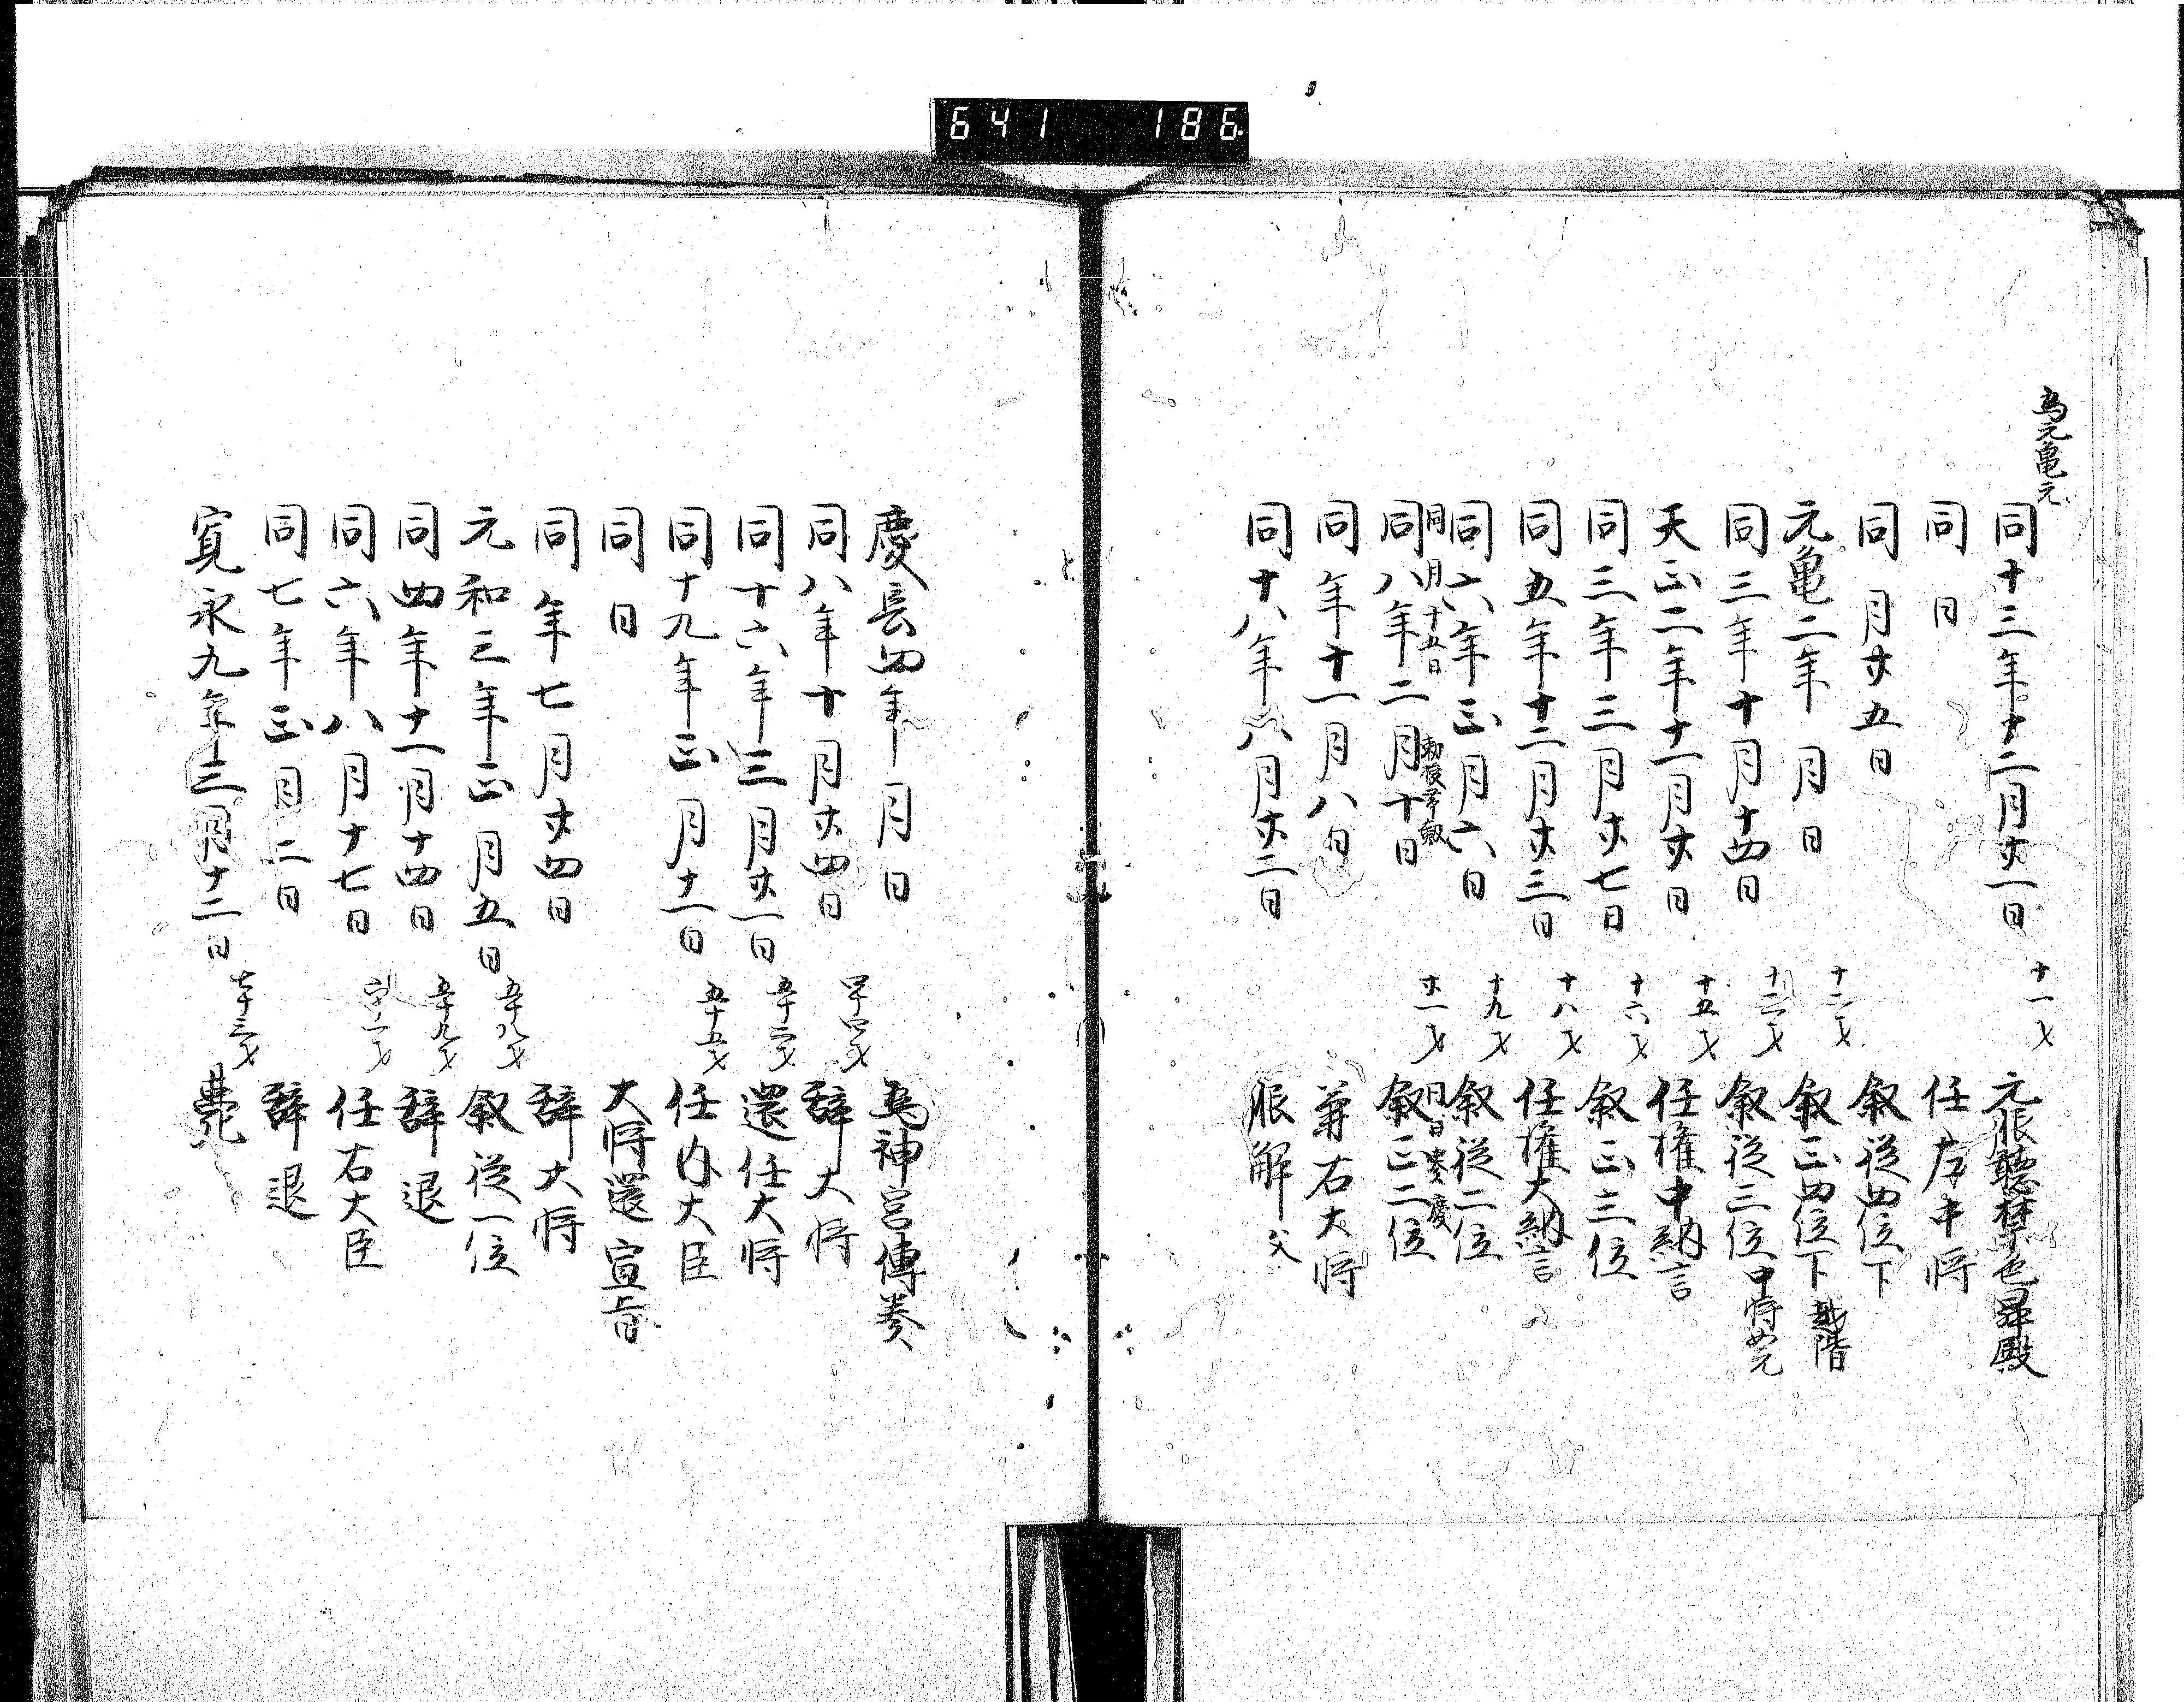 641 186
為元亀元
同十三年十二月廿一日 十一才 元服聴禁色昇殿
同日 任左中将
同月廿五日 叙従四位下
元亀二年 月 日 十二才 叙正四位下 越階
同三年十月十四日 十三才 叙従三位 中将如元
天正二年十一月廿日 十五才 任権中納言
同三年三月廿七日 十六才 叙正三位
同五年十二月廿三日 十八才 任権大納言
同六年正月六日 十九才 叙従二位
同月十五日 勅授帯剣 同日 奏慶
同八年二月十日 廿一才 叙正二位
同年十一月八日 兼右大将
同十八年八月廿二日 服解 父
慶長四年 月 日 為神宮傳奏
同八年十月廿四日 四十四才 辞大将
同十六年三月廿一日 五十二才 還任大将
同十九年正月十一日 五十五才 任内大臣
同日 大将還宣旨
同年七月廿四日 辞大将
元和三年正月五日 五十八才 叙従一位
同四年十一月十四日 五十九才 辞退
同六年八月十七日 六十一才 任右大臣
同七年正月二日 辞退
寛永九年三月十二日 七十三才 薨